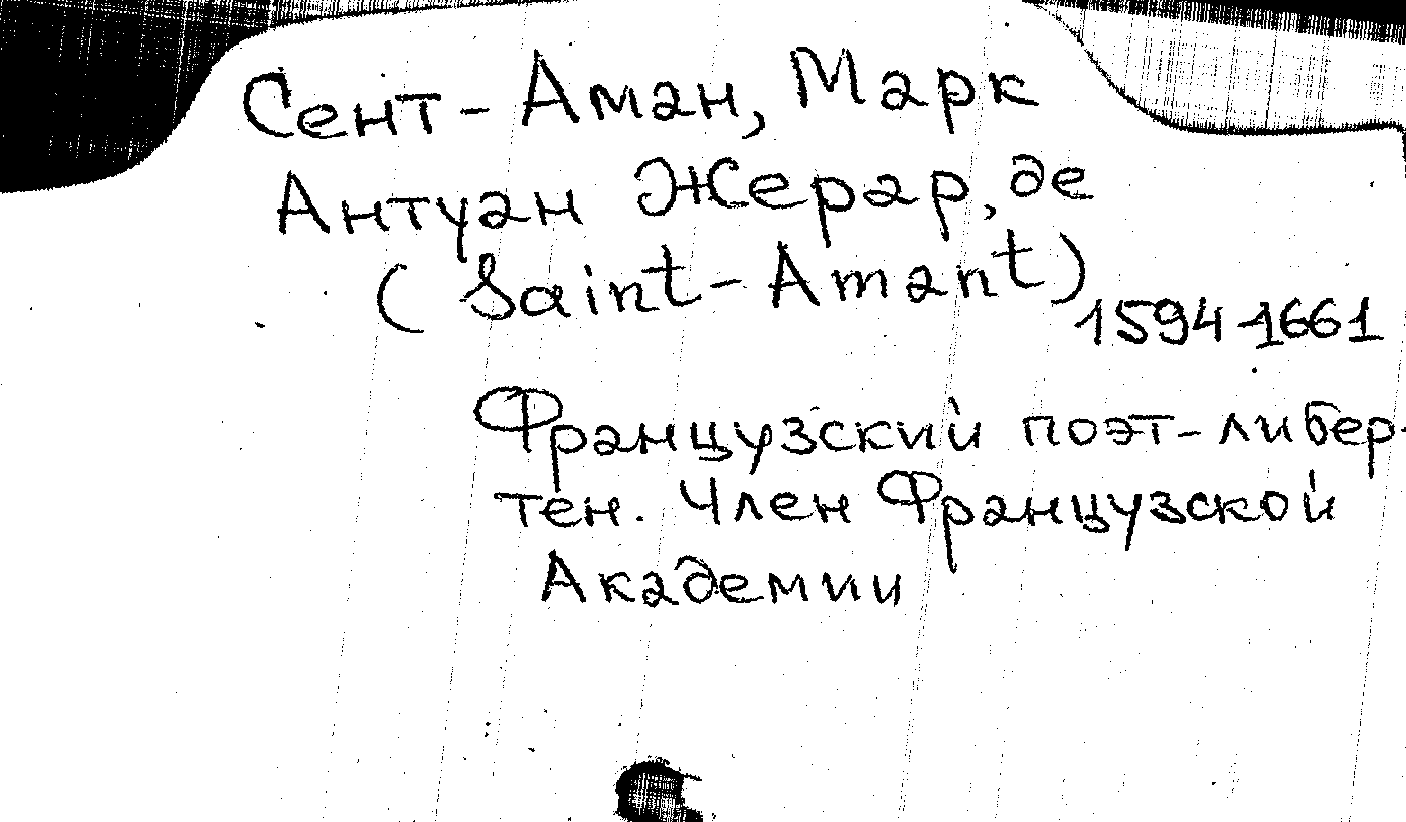 Сент-Аман, Марк
Антуан Жерар, де
(Saint-Amant)
1594-1661
Французский поэт-либер-
тен. Член Французской
Академии